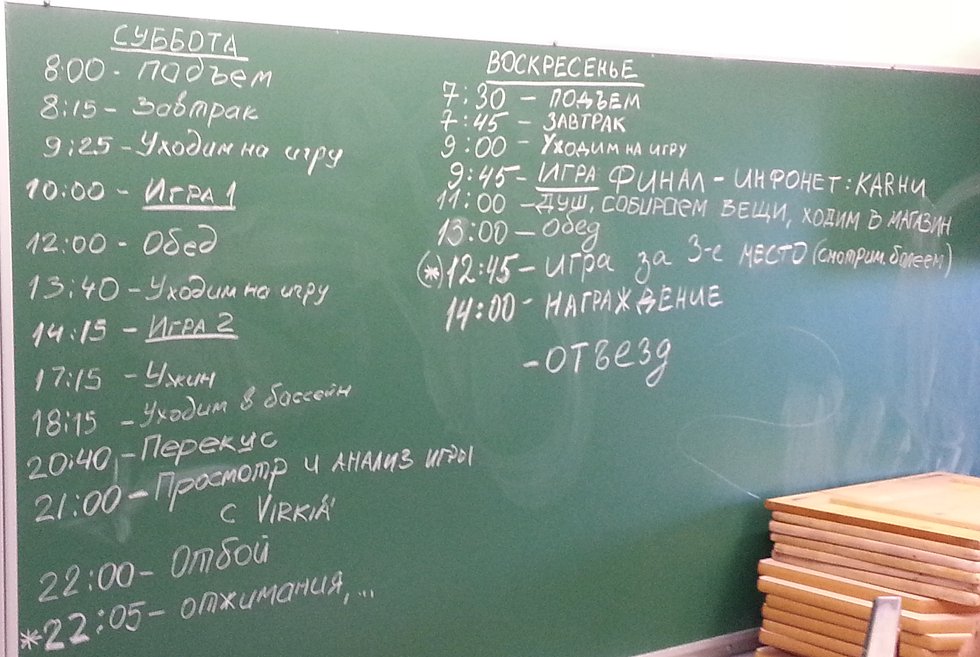 СУББОТА
8:00 - Подъем
8:15 - Завтрак
9:25 - Уходим на игру
10:00 - ИГРА 1
12:00 - Обед
13:40 - Уходим на игру
14:15 - ИГРА 2
17:15 - Ужин
18:15 - Уходим в бассейн
20:40 - Перекус
21:00 - Просмотр и АНАЛИЗ ИГРЫ
с VIRKIÄ
22:00 - Отбой
*22:05 - отжимания,...
ВОСКРЕСЕНЬЕ
7:30 - ПОДЪЕМ
7:45 - ЗАВТРАК
9:00 - Уходим на игру
9:45 - ИГРА ФИНАЛ - ИНФОНЕТ: KARHU
11:00 - ДУШ, СОБИРАЕМ ВЕЩИ, ХОДИМ В МАГАЗИН
13:00 - Обед
(*) 12:45 - ИГРА за 3-е МЕСТО (смотрим, болеем)
14:00 - НАГРАЖДЕНИЕ
- ОТЪЕЗД